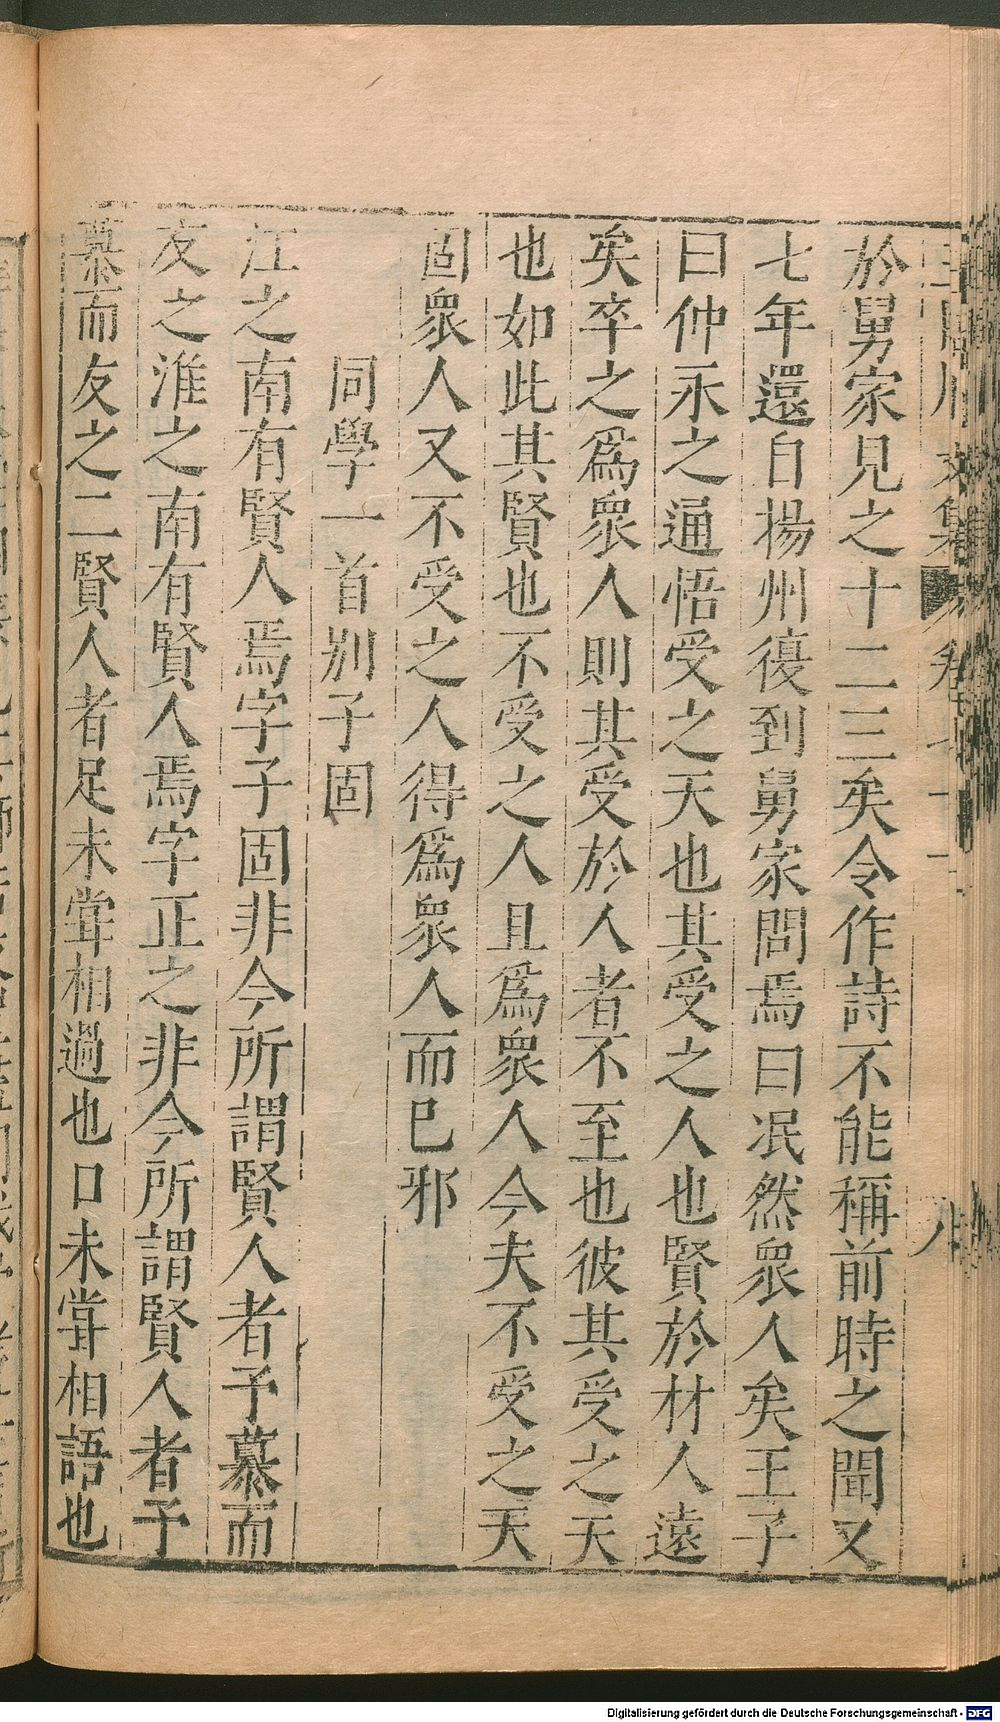 於舅家見之十二三矣令作詩不能稱前時之聞又
七年還自揚州復到舅家問焉曰泯然衆人矣王子
曰仲永之通悟受之天也其受之人也賢於材人遠
矣卒之爲衆人則其受於人者不至也彼其受之天
也如此其賢也不受之人且爲衆人今夫不受之天
固衆人又不受之人得爲衆人而已邪
同學一首別子固
江之南有賢人焉字子固非今所謂賢人者予慕而
友之淮之南有賢人焉字正之非今所謂賢人者予
慕而友之二賢人者足未甞相過也口未甞相語也
Digitalisierung gefördert durch die Deutsche Forschungsgemeinschaft - DFG